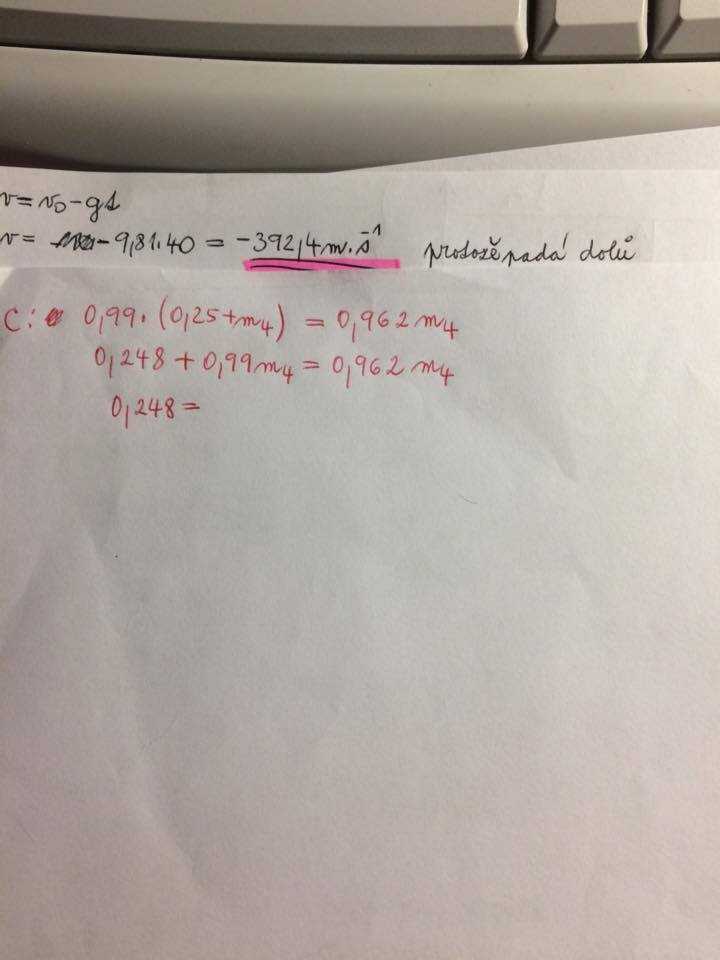 v = v₀ - gt
v = - 9,81.40 = -392,4 m.s⁻¹ protože padá dolů
C: 0,99. (0,25+m₄) = 0,962 m₄
0,248 + 0,99m₄ = 0,962 m₄
0,248 =